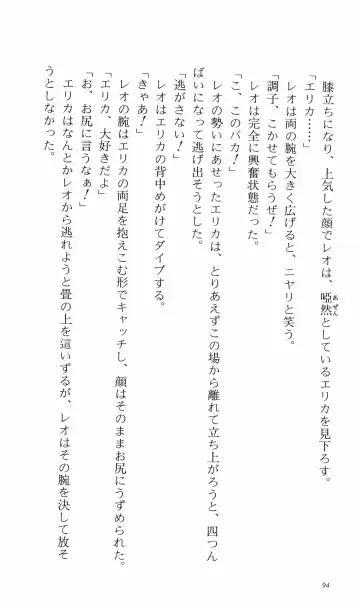 膝立ちになり、上気した顔でレオは、啞然としているエリカを見下ろす。
「エリカ……」
レオは両の腕を大きく広げると、ニヤリと笑う。
「調子、こかせてもらうぜ！」
レオは完全に興奮状態だった。
「こ、このバカ！」
レオの勢いにあせったエリカは、とりあえずこの場から離れて立ち上がろうと、四つん
ばいになって逃げ出そうとした。
「逃がさない！」
レオはエリカの背中めがけてダイブする。
「きゃあ！」
レオの腕はエリカの両足を抱えこむ形でキャッチし、顔はそのままお尻にうずめられた。
「エリカ、大好きだよ」
「お、お尻に言うなぁ！」
エリカはなんとかレオから逃れようと畳の上を這いずるが、レオはその腕を決して放そ
うとしなかった。
94